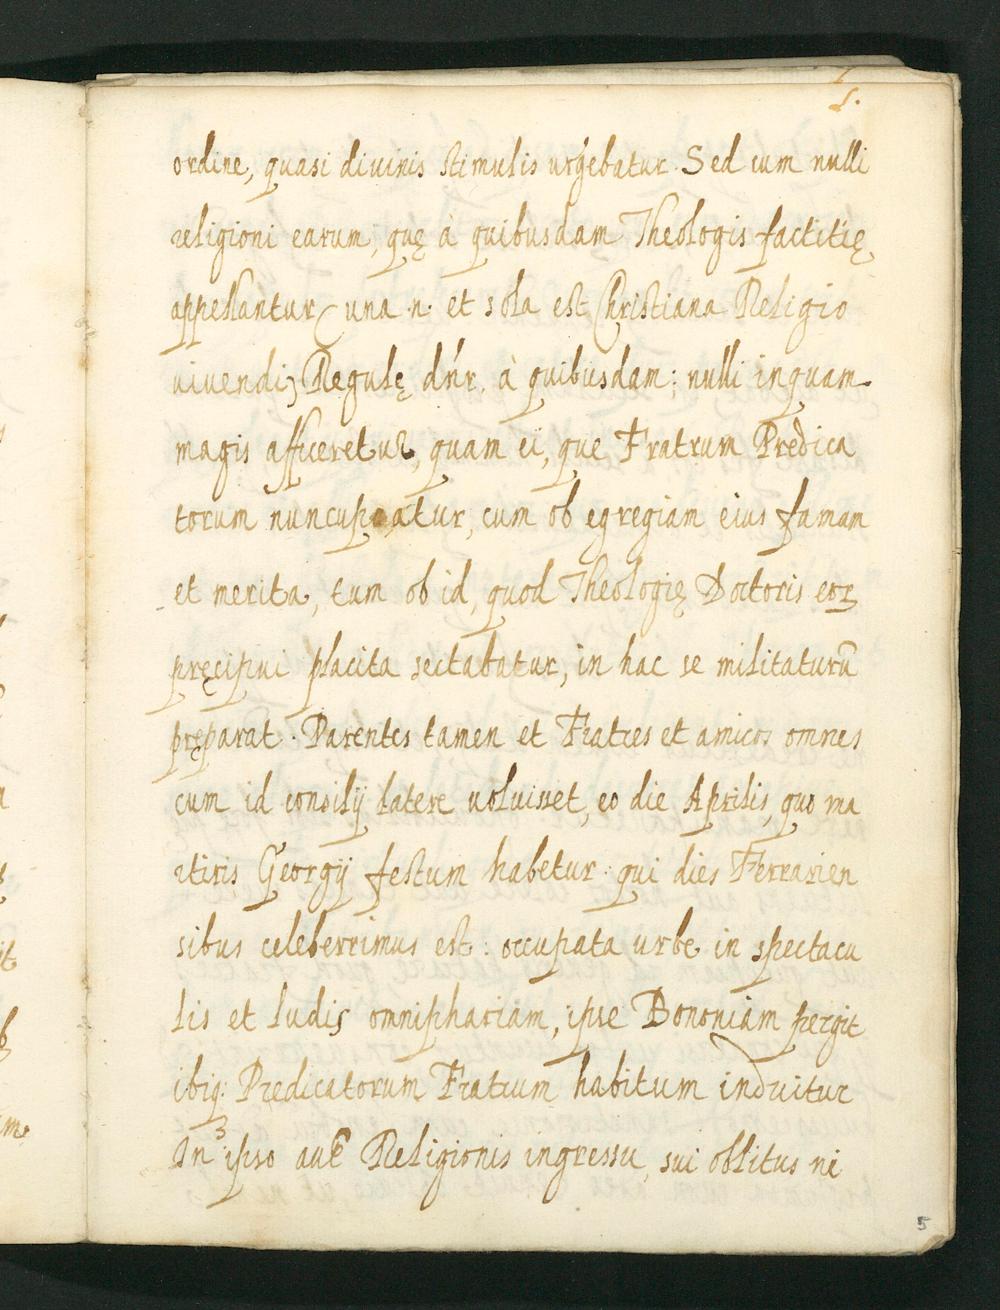 5.
ordine, quasi diuinis stimulis urgebatur. Sed cum nulli
religioni earum, quę à quibusdam Theologis factitię
appellantur (una .n. et sola est Christiana Religio
uiuendi) Regulę dn̄r. à quibusdam: nulli inquam
magis afficeretur, quam ei, que Fratrum Predica
torum nuncupatur, cum ob egregiam eius faman
et merita, tum ob id, quod Theologię Doctoris eoꝝ
pręcipui placita sectabatur, in hac se militaturū
pręparat. Parentes tamen et Fratres et amicos omnes
cum id consilij latere uoluisset, eo die Aprilis, quo ma
rtiris Georgij festum habetur: qui dies Ferrarien
sibus celeberrimus est: occupata urbe in spectacu
lis et ludis omniphariam, ipse Bononiam pergit
ibiq: Predicatorum Fratrum habitum induitur
In ipso aut̄ Religionis ingressu, sui oblitus ni
5